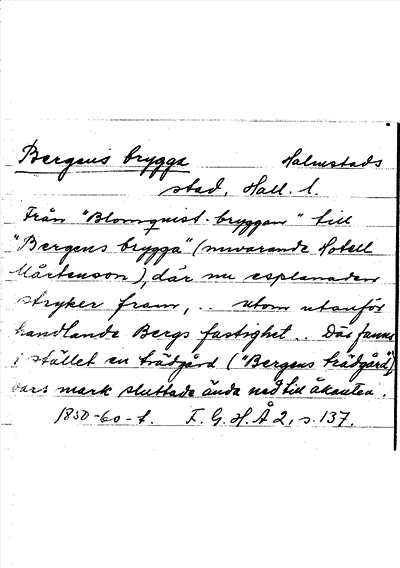 Bergens brygga Halmstads
stad, Hall. l.
Från "Blomquist-bryggan" till
"Bergens brygga" (nuvarande Hotell
Mårtenson), där nu esplanaden
stryker fram, .. utom utanför
handlande Bergs fastighet .. Där fanns
i stället en trädgård ("Bergens trädgård"),
vars mark sluttade ända ned till åkanten.
1850-60-t. F. G. H. Å 2, s. 137.